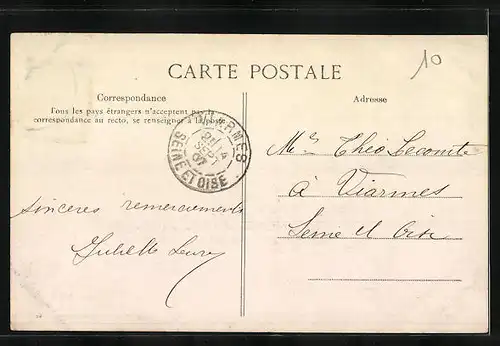 10
CARTE POSTALE
Correspondance
Tous les pays étrangers n'acceptent pas la
correspondance au recto, se renseigner à la poste
Adresse
VIARMES
SEINE ET OISE
07
Théo Lecomte
à Viarmes
Seine et Oise
sincères remerciements
Juliette